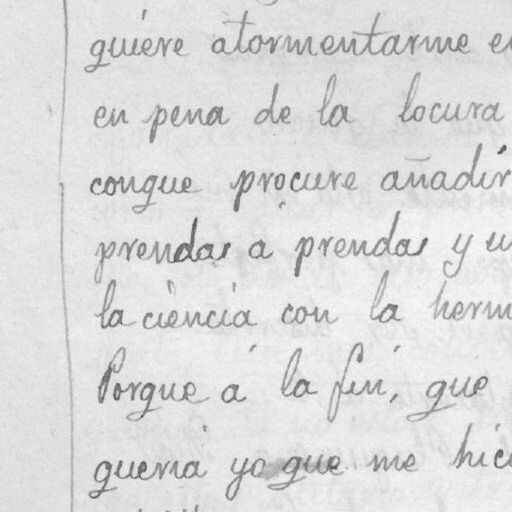 quiere atormentarme e
en pena de la locura
conque procure añadir
prendas a prendas y u
la ciencia con la herm
Porque á la fin, que
queria yo que me hic